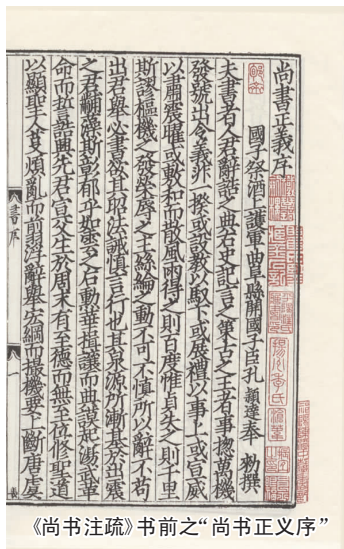 尚書正義序
國子祭酒上護軍曲阜縣開國子臣孔穎達奉 勑撰
夫書者人君辭誥之典右史記言之策古之王者事揔萬機
發號出令義非一揆或設教以馭下或展禮以事上或宣威
以肅震曜或敷和而散風雨得之則百度惟貞失之則千里
斯謬樞機之發榮辱之主絲綸之動不可不慎所以辭不苟
出君舉必書欲其昭法誡慎言行也其泉源所漸基於出震
之君黼藻斯彰郁乎如雲之后勳華揖讓而典謨起湯武革
命而誓誥興先君宣父生於周末有至德而無至位修聖道
以顯聖人芟煩亂而翦浮辭舉宏綱而撮機要上斷唐虞
書序
一
《尚书注疏》书前之“尚书正义序”